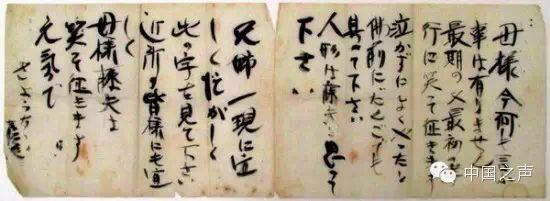 母様今何も言ふ
事は有りません
最期の又最初の孝
行に笑って征きます
泣かずによくやったと
佛前にだんごでも
具へて下さい
人形は藤夫と思って
下さい
兄姉一現に宜
しく忙がしく
此の字を見て下さい
近所の皆様にも宜
しく
母様藤夫は
笑って征きます
元氣で
さようなら
中国之声